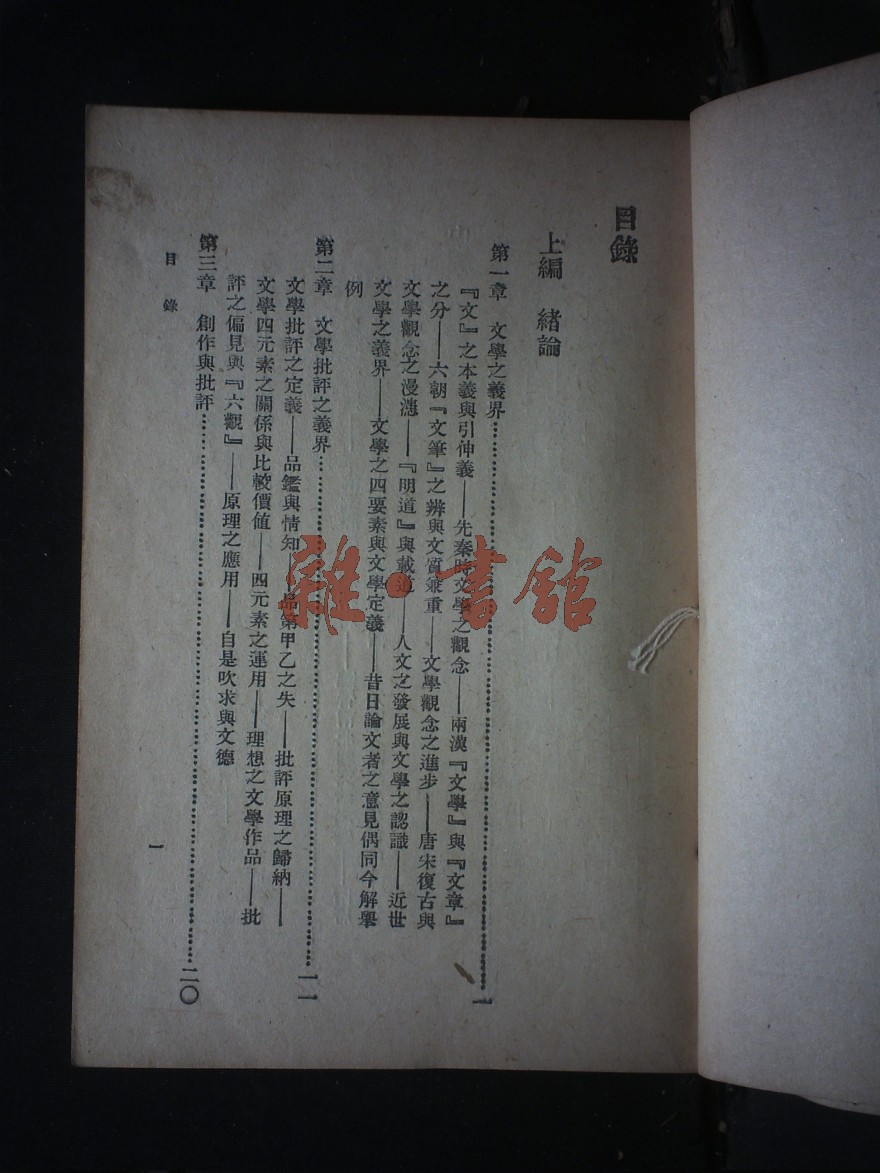 目錄
上編　緒論
第一章　文學之義界…………一
『文』之本義與引伸義——先秦時文學之觀念——兩漢『文學』與『文章』
之分——六朝『文筆』之辨與文質兼重——文學觀念之進步——唐宋復古與
文學觀念之漫漶——『明道』與載道——人文之發展與文學之認識——近世
文學之義界——文學之四要素與文學定義——昔日論文者之意見偶同今解舉
例
第二章　文學批評之義界…………一一
文學批評之定義——品鑑與情知——品第甲乙之失——批評原理之歸納——
文學四元素之關係與比較價值——四元素之運用——理想之文學作品——批
評之偏見與『六觀』——原理之應用——自是吹求與文德
第三章　創作與批評…………二〇
目錄
一
雜·書館